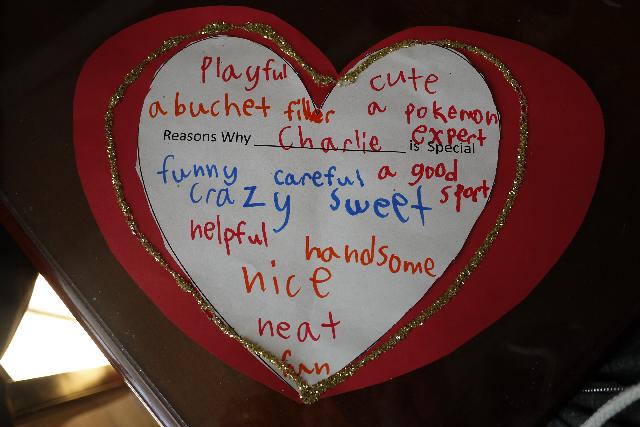 playful cute
a buchet filler a pokemon expert
Reasons Why Charlie is Special
funny careful a good sport
crazy sweet
helpful handsome
nice
neat
fun